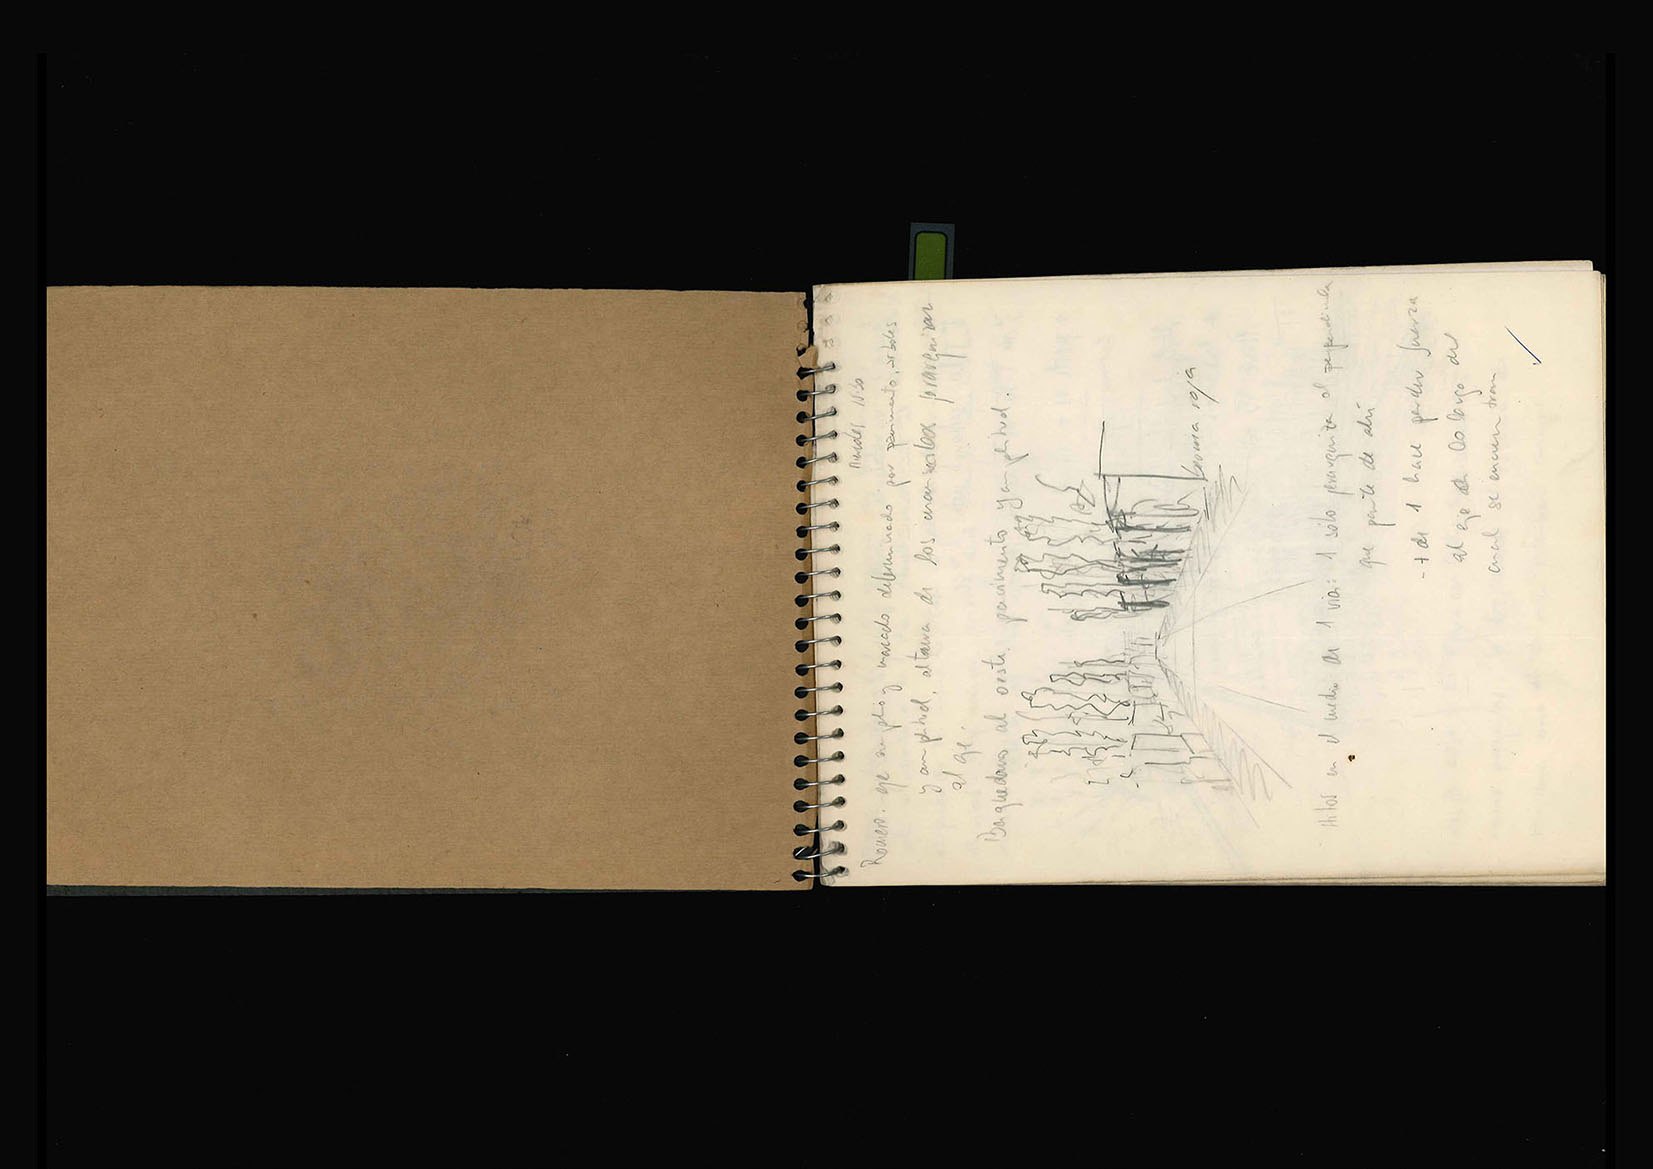 Romero: eje amplio y marcado determinado por pavimento, árboles
y amplitud, altura de los encimados jerarquizan
al eje.
Baquedano al oeste: pavimento y amplitud.
goma roja
Hitos en el medio de 1 vía: 1 sólo jerarquiza el perpendicular
que parte de ahí
- + de 1 hace perder fuerza
al eje a lo largo del
cual se encuentran